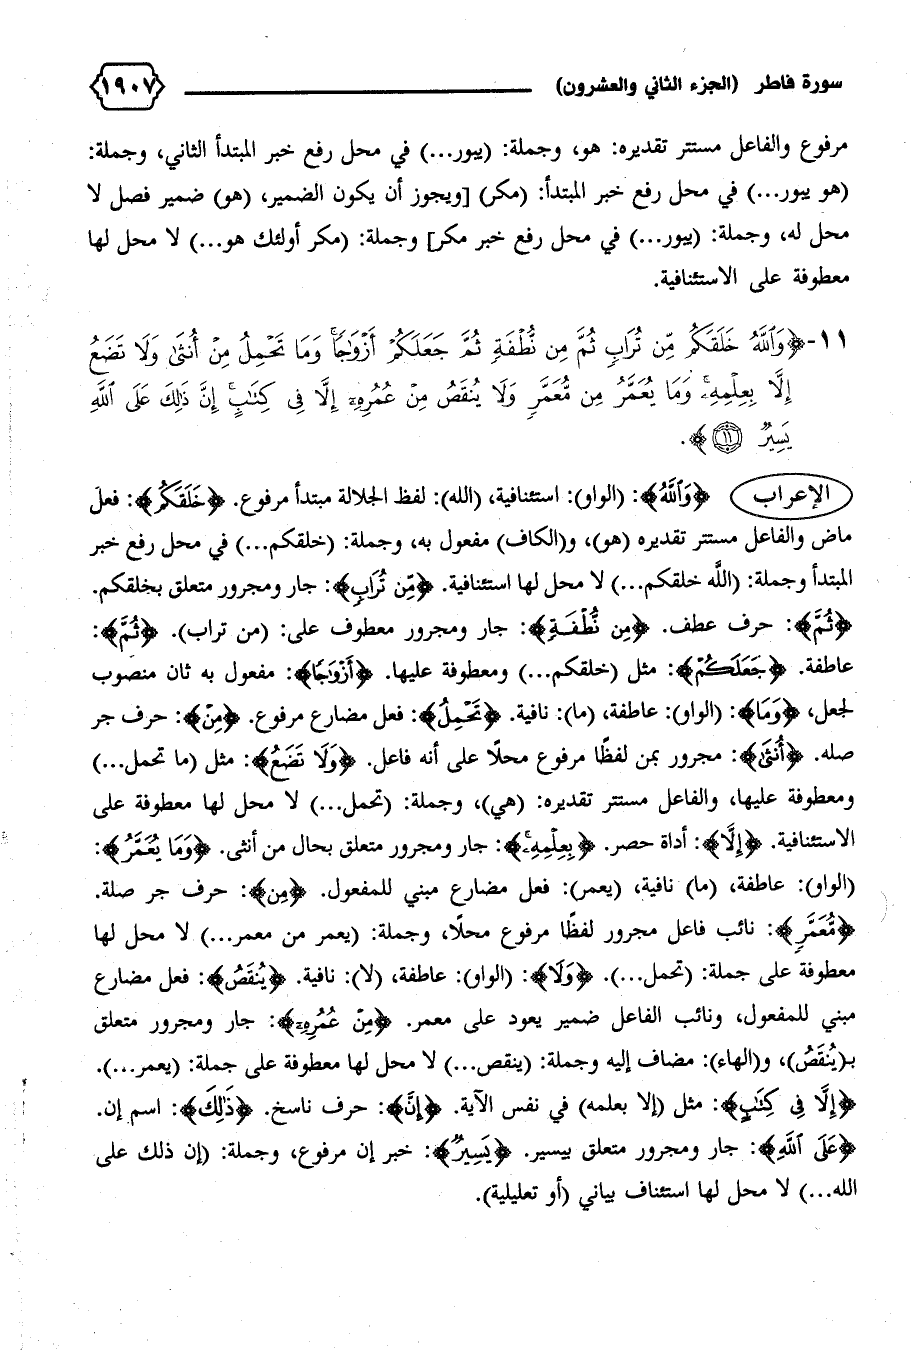 سورة فاطر (الجزء الثاني والعشرون) ١٩٠٧
مرفوع والفاعل مستتر تقديره: هو، وجملة: (يبور...) في محل رفع خبر المبتدأ الثاني، وجملة:
(هو يبور...) في محل رفع خبر المبتدأ: (مكر) [ويجوز أن يكون الضمير، (هو) ضمير فصل لا
محل له، وجملة: (يبور...) في محل رفع خبر مكر] وجملة: (مكر أولئك هو...) لا محل لها
معطوفة على الاستئنافية.
١١-﴿وَٱللَّهُ خَلَقَكُم مِّن تُرَابٍ ثُمَّ مِن نُّطْفَةٍ ثُمَّ جَعَلَكُمْ أَزْوَٰجًا ۚ وَمَا تَحْمِلُ مِنْ أُنثَىٰ وَلَا تَضَعُ
إِلَّا بِعِلْمِهِۦ ۚ وَمَا يُعَمَّرُ مِن مُّعَمَّرٍ وَلَا يُنقَصُ مِنْ عُمُرِهِۦٓ إِلَّا فِى كِتَٰبٍ ۚ إِنَّ ذَٰلِكَ عَلَى ٱللَّهِ
يَسِيرٌ ١١﴾.
الإعراب ﴿وَٱللَّهُ﴾: (الواو): استئنافية، (الله): لفظ الجلالة مبتدأ مرفوع. ﴿خَلَقَكُم﴾: فعل
ماض والفاعل مستتر تقديره (هو)، و(الكاف) مفعول به، وجملة: (خلقكم...) في محل رفع خبر
المبتدأ وجملة: (اللَّه خلقكم...) لا محل لها استئنافية. ﴿مِّن تُرَابٍ﴾: جار ومجرور متعلق بخلقكم.
﴿ثُمَّ﴾: حرف عطف. ﴿مِن نُّطْفَةٍ﴾: جار ومجرور معطوف على: (من تراب). ﴿ثُمَّ﴾:
عاطفة. ﴿جَعَلَكُمْ﴾: مثل (خلقكم...) ومعطوفة عليها. ﴿أَزْوَٰجًا﴾: مفعول به ثان منصوب
لجعل، ﴿وَمَا﴾: (الواو): عاطفة، (ما): نافية. ﴿تَحْمِلُ﴾: فعل مضارع مرفوع. ﴿مِنْ﴾: حرف جر
صله. ﴿أُنثَىٰ﴾: مجرور بمن لفظًا مرفوع محلًا على أنه فاعل. ﴿وَلَا تَضَعُ﴾: مثل (ما تحمل...)
ومعطوفة عليها، والفاعل مستتر تقديره: (هي)، وجملة: (تحمل...) لا محل لها معطوفة على
الاستئنافية. ﴿إِلَّا﴾: أداة حصر. ﴿بِعِلْمِهِۦ ۚ﴾: جار ومجرور متعلق بحال من أنثى. ﴿وَمَا يُعَمَّرُ﴾:
(الواو): عاطفة، (ما) نافية، (يعمر): فعل مضارع مبني للمفعول. ﴿مِن﴾: حرف جر صلة.
﴿مُّعَمَّرٍ﴾: نائب فاعل مجرور لفظًا مرفوع محلًا، وجملة: (يعمر من معمر...) لا محل لها
معطوفة على جملة: (تحمل...). ﴿وَلَا﴾: (الواو): عاطفة، (لا): نافية. ﴿يُنقَصُ﴾: فعل مضارع
مبني للمفعول، ونائب الفاعل ضمير يعود على معمر. ﴿مِنْ عُمُرِهِۦٓ﴾: جار ومجرور متعلق
بـ(يُنقَصُ)، و(الهاء): مضاف إليه وجملة: (ينقص...) لا محل لها معطوفة على جملة: (يعمر...).
﴿إِلَّا فِى كِتَٰبٍ﴾: مثل (إلا بعلمه) في نفس الآية. ﴿إِنَّ﴾: حرف ناسخ. ﴿ذَٰلِكَ﴾: اسم إن.
﴿عَلَى ٱللَّهِ﴾: جار ومجرور متعلق بيسير. ﴿يَسِيرٌ﴾: خبر إن مرفوع، وجملة: (إن ذلك على
الله...) لا محل لها استئناف بياني (أو تعليلية).